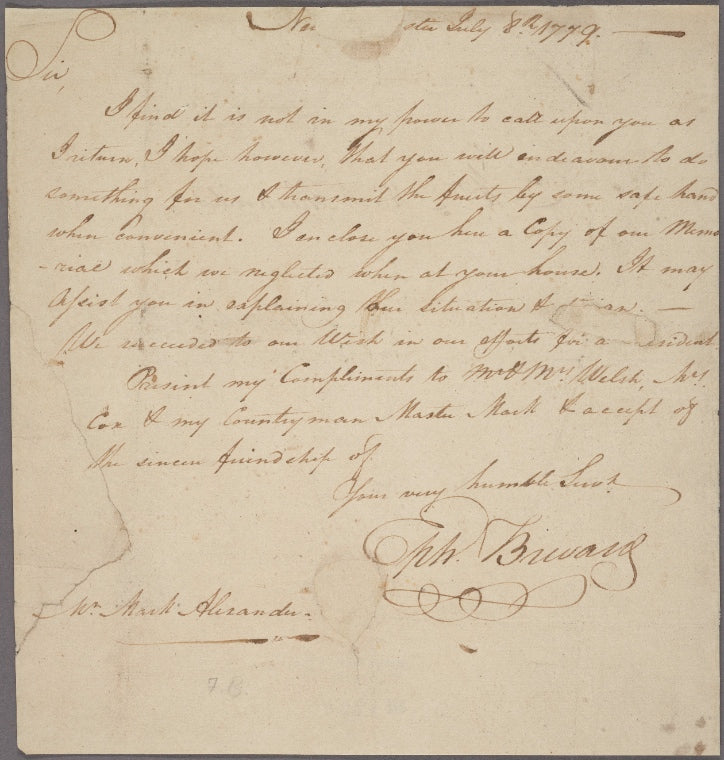 July 8th 1779.
Sir,
I find it is not in my power to call upon you as
I return, I hope however, that you will endeavour to do
something for us & transmit the fruits by some safe hand
when convenient. I enclose you here a Copy of our Memo
-rial which we neglected when at your house. It may
Assist you in explaining our situation &
We succeeded to our Wish in our efforts for a
Present my Compliments to Mr. & Mrs. Welsh, Mrs.
Cox & my Countryman Master Mark & accept of
the sincere friendship of
Your very humble Servt.
Eph. Brevard
Mr. Mark Alexander.